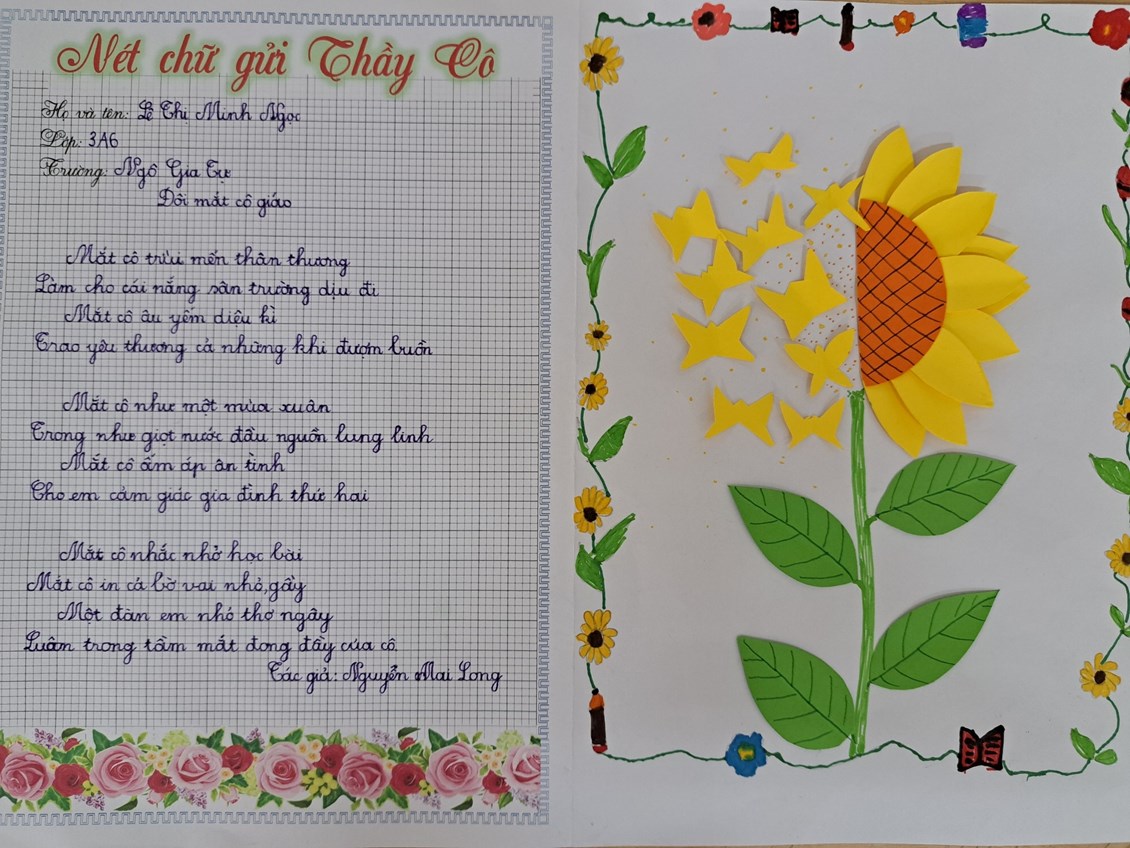 Nét chữ gửi Thầy Cô
Họ và tên: Lê Thị Minh Ngọc
Lớp: 3A6
Trường: Ngô Gia Tự
Đôi mắt cô giáo
Mắt cô trìu mến thân thương
Làm cho cái nắng sân trường dịu đi
Mắt cô âu yếm diệu kì
Trao yêu thương cả những khi đượm buồn
Mắt cô như một mùa xuân
Trong như giọt nước đầu nguồn lung linh
Mắt cô ấm áp ân tình
Cho em cảm giác gia đình thứ hai
Mắt cô nhắc nhở học bài
Mắt cô in cả bờ vai nhỏ, gầy
Một đàn em nhỏ thơ ngây
Luôn trong tầm mắt đong đầy của cô.
Tác giả: Nguyễn Mai Long